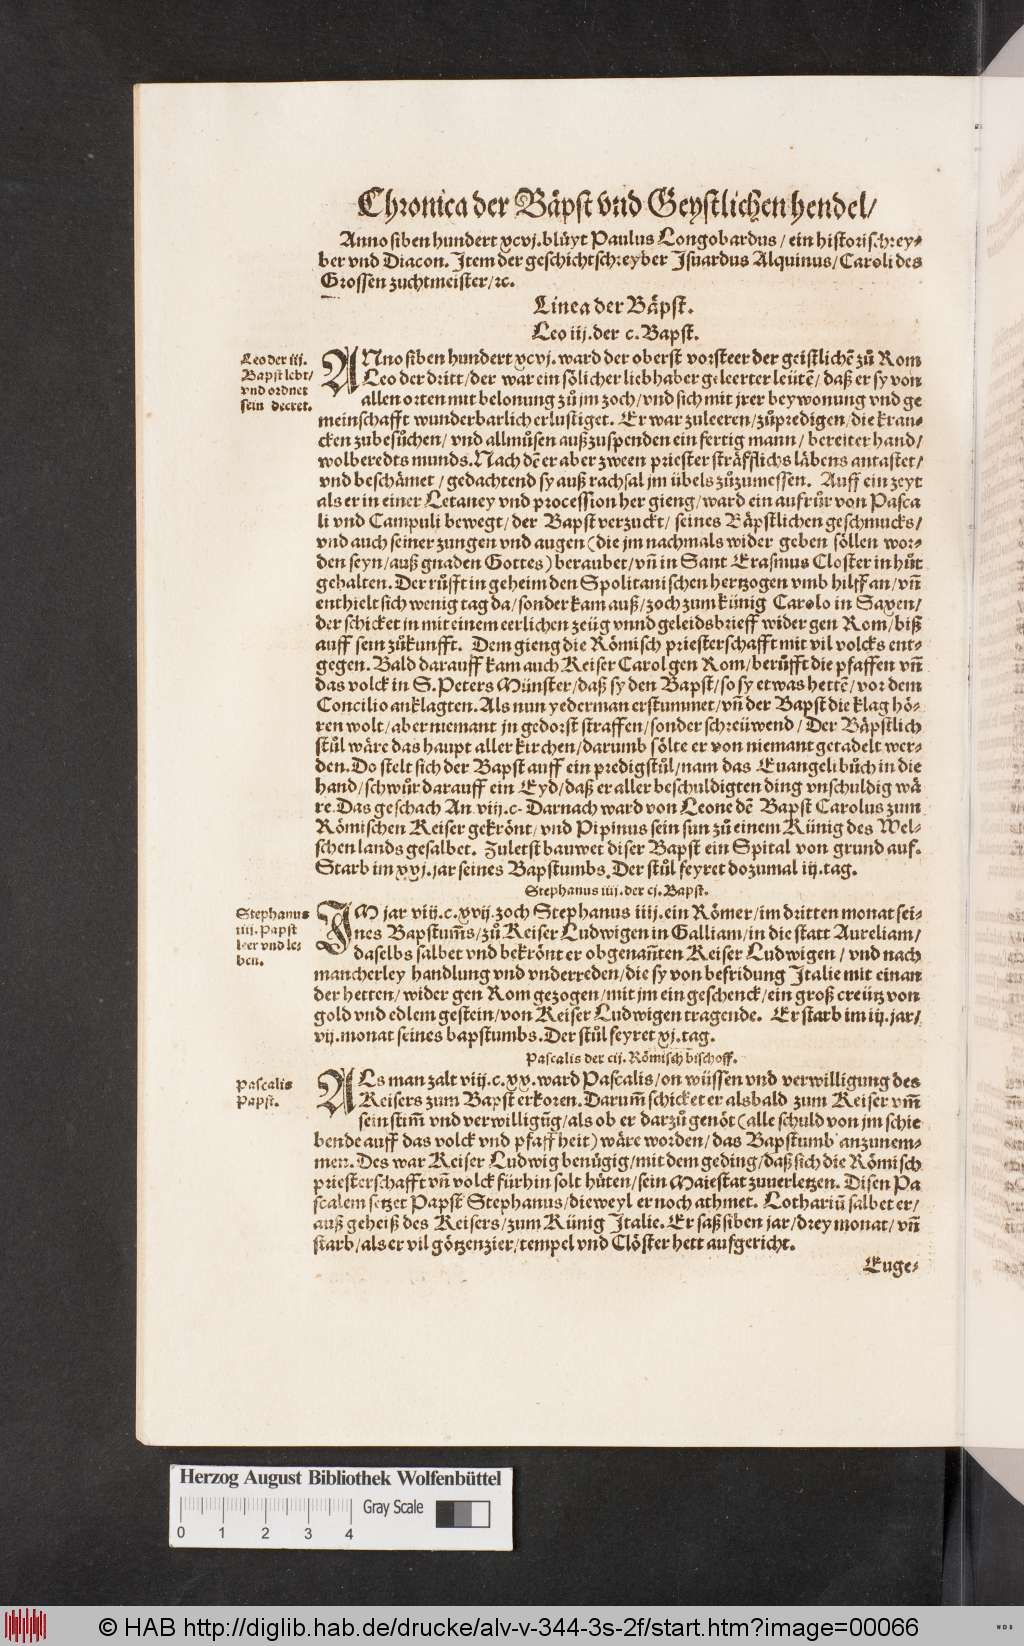 Chronica der Bäpst vnd Geystlichen hendel/
Anno siben hundert xcvj. blüyt Paulus Longobardus / ein historischrey-
ber vnd Diacon. Item der geschichtschreyber Isuardus Alquinus/ Caroli des
Grossen zuchtmeister/ ꝛc.
Linea der Bäpst.
Leo iij. der c. Bapst.
Leo der iij.
Bapst lebt/
vnd ordnet
sein decret.
ANno siben hundert xcvj. ward der oberst vorsteer der geistlichẽ zů Rom
Leo der dritt/ der war ein sölicher liebhaber geleerter leütẽ/ daß er sy von
allen orten mit belonung zů jm zoch/ vnd sich mit jrer beywonung vnd ge
meinschafft wunderbarlich erlustiget. Er war zuleeren/ zůpredigen/ die kran-
cken zubesůchen/ vnd allmůsen außzuspenden ein fertig mann/ bereiter hand/
wolberedts munds. Nach dẽ er aber zween priester sträfflichs läbens antastet/
vnd beschämet / gedachtend sy auß rachsal jm übels zůzumessen. Auff ein zeyt
als er in einer Letaney vnd procession her gieng/ ward ein aufrůr von Pasca
li vnd Campuli bewegt/ der Bapst verzuckt/ seines Bäpstlichen geschmucks/
vnd auch seiner zungen vnd augen (die jm nachmals wider geben söllen wor-
den seyn/ auß gnaden Gottes) beraubet/ vñ in Sant Erasmus Closter in hůt
gehalten. Der růfft in geheim den Spolitanischen hertzogen vmb hilff an/ vñ
enthielt sich wenig tag da/ sonder kam auß/ zoch zum künig Carolo in Saxen/
der schicket in mit einem eerlichen zeüg vnnd geleidsbrieff wider gen Rom/ biß
auff sein zůkunfft. Dem gieng die Römisch priesterschafft mit vil volcks ent-
gegen. Bald darauff kam auch Keiser Carol gen Rom/ berůfft die pfaffen vñ
das volck in S. Peters Münster/ daß sy den Bapst/ so sy etwas hettẽ/ vor dem
Concilio anklagten. Als nun yederman erstummet/ vñ der Bapst die klag hö-
ren wolt/ aber niemant jn gedorst straffen/ sonder schreüwend/ Der Bäpstlich
stůl wäre das haupt aller kirchen/ darumb sölte er von niemant getadelt wer-
den. Do stelt sich der Bapst auff ein predigstůl/ nam das Euangelibůch in die
hand/ schwůr darauff ein Eyd/ daß er aller beschuldigten ding vnschuldig wä
re. Das geschach An. viij.c. Darnach ward von Leone dẽ Bapst Carolus zum
Römischen Keiser gekrönt/ vnd Pipinus sein sun zů einem Künig des Wel-
schen lands gesalbet. Zuletst bauwet diser Bapst ein Spital von grund auf.
Starb im xxj. jar seines Bapstumbs. Der stůl feyret dozumal iij. tag.
Stephanus iiij. der cj. Bapst.
Stephanus
iiij. Papst
leer vnd le-
ben.
IM jar viij.c.xvij. zoch Stephanus iiij. ein Römer/ im dritten monat sei-
nes Bapstum̃s/ zů Keiser Ludwigen in Galliam/ in die statt Aureliam/
daselbs salbet vnd bekrönt er obgenañten Keiser Ludwigen / vnd nach
mancherley handlung vnd vnderreden/ die sy von befridung Italie mit einan
der hetten/ wider gen Rom gezogen/ mit jm ein geschenck/ ein groß creütz von
gold vnd edlem gestein/ von Keiser Ludwigen tragende. Er starb im iij. jar/
vij. monat seines bapstumbs. Der stůl feyret xj. tag.
Pascalis der cij. Römisch bischoff.
Pascalis
Papst.
ALs man zalt viij.c.xx. ward Pascalis/ on wüssen vnd verwilligung des
Keisers zum Bapst erkoren. Darum̃ schicket er alsbald zum Keiser vm̃
sein stim̃ vnd verwilligũg/ als ob er darzů genöt (alle schuld von jm schie
bende auff das volck vnd pfaffheit) wäre worden/ das Bapstumb anzunem-
men. Des war Keiser Ludwig benügig/ mit dem geding/ daß sich die Römisch
priesterschafft vñ volck fürhin solt hůten/ sein Maiestat zuuerletzen. Disen Pa
scalem setzet Papst Stephanus/ dieweyl er noch athmet. Lothariũ salbet er/
auß geheiß des Keisers/ zum Künig Italie. Er saß siben jar/ drey monat/ vñ
starb/ als er vil götzenzier/ tempel vnd Clöster hett aufgericht.
Euge-
Herzog August Bibliothek Wolfenbüttel
Gray Scale
0 1 2 3 4
© HAB http://diglib.hab.de/drucke/alv-v-344-3s-2f/start.htm?image=00066